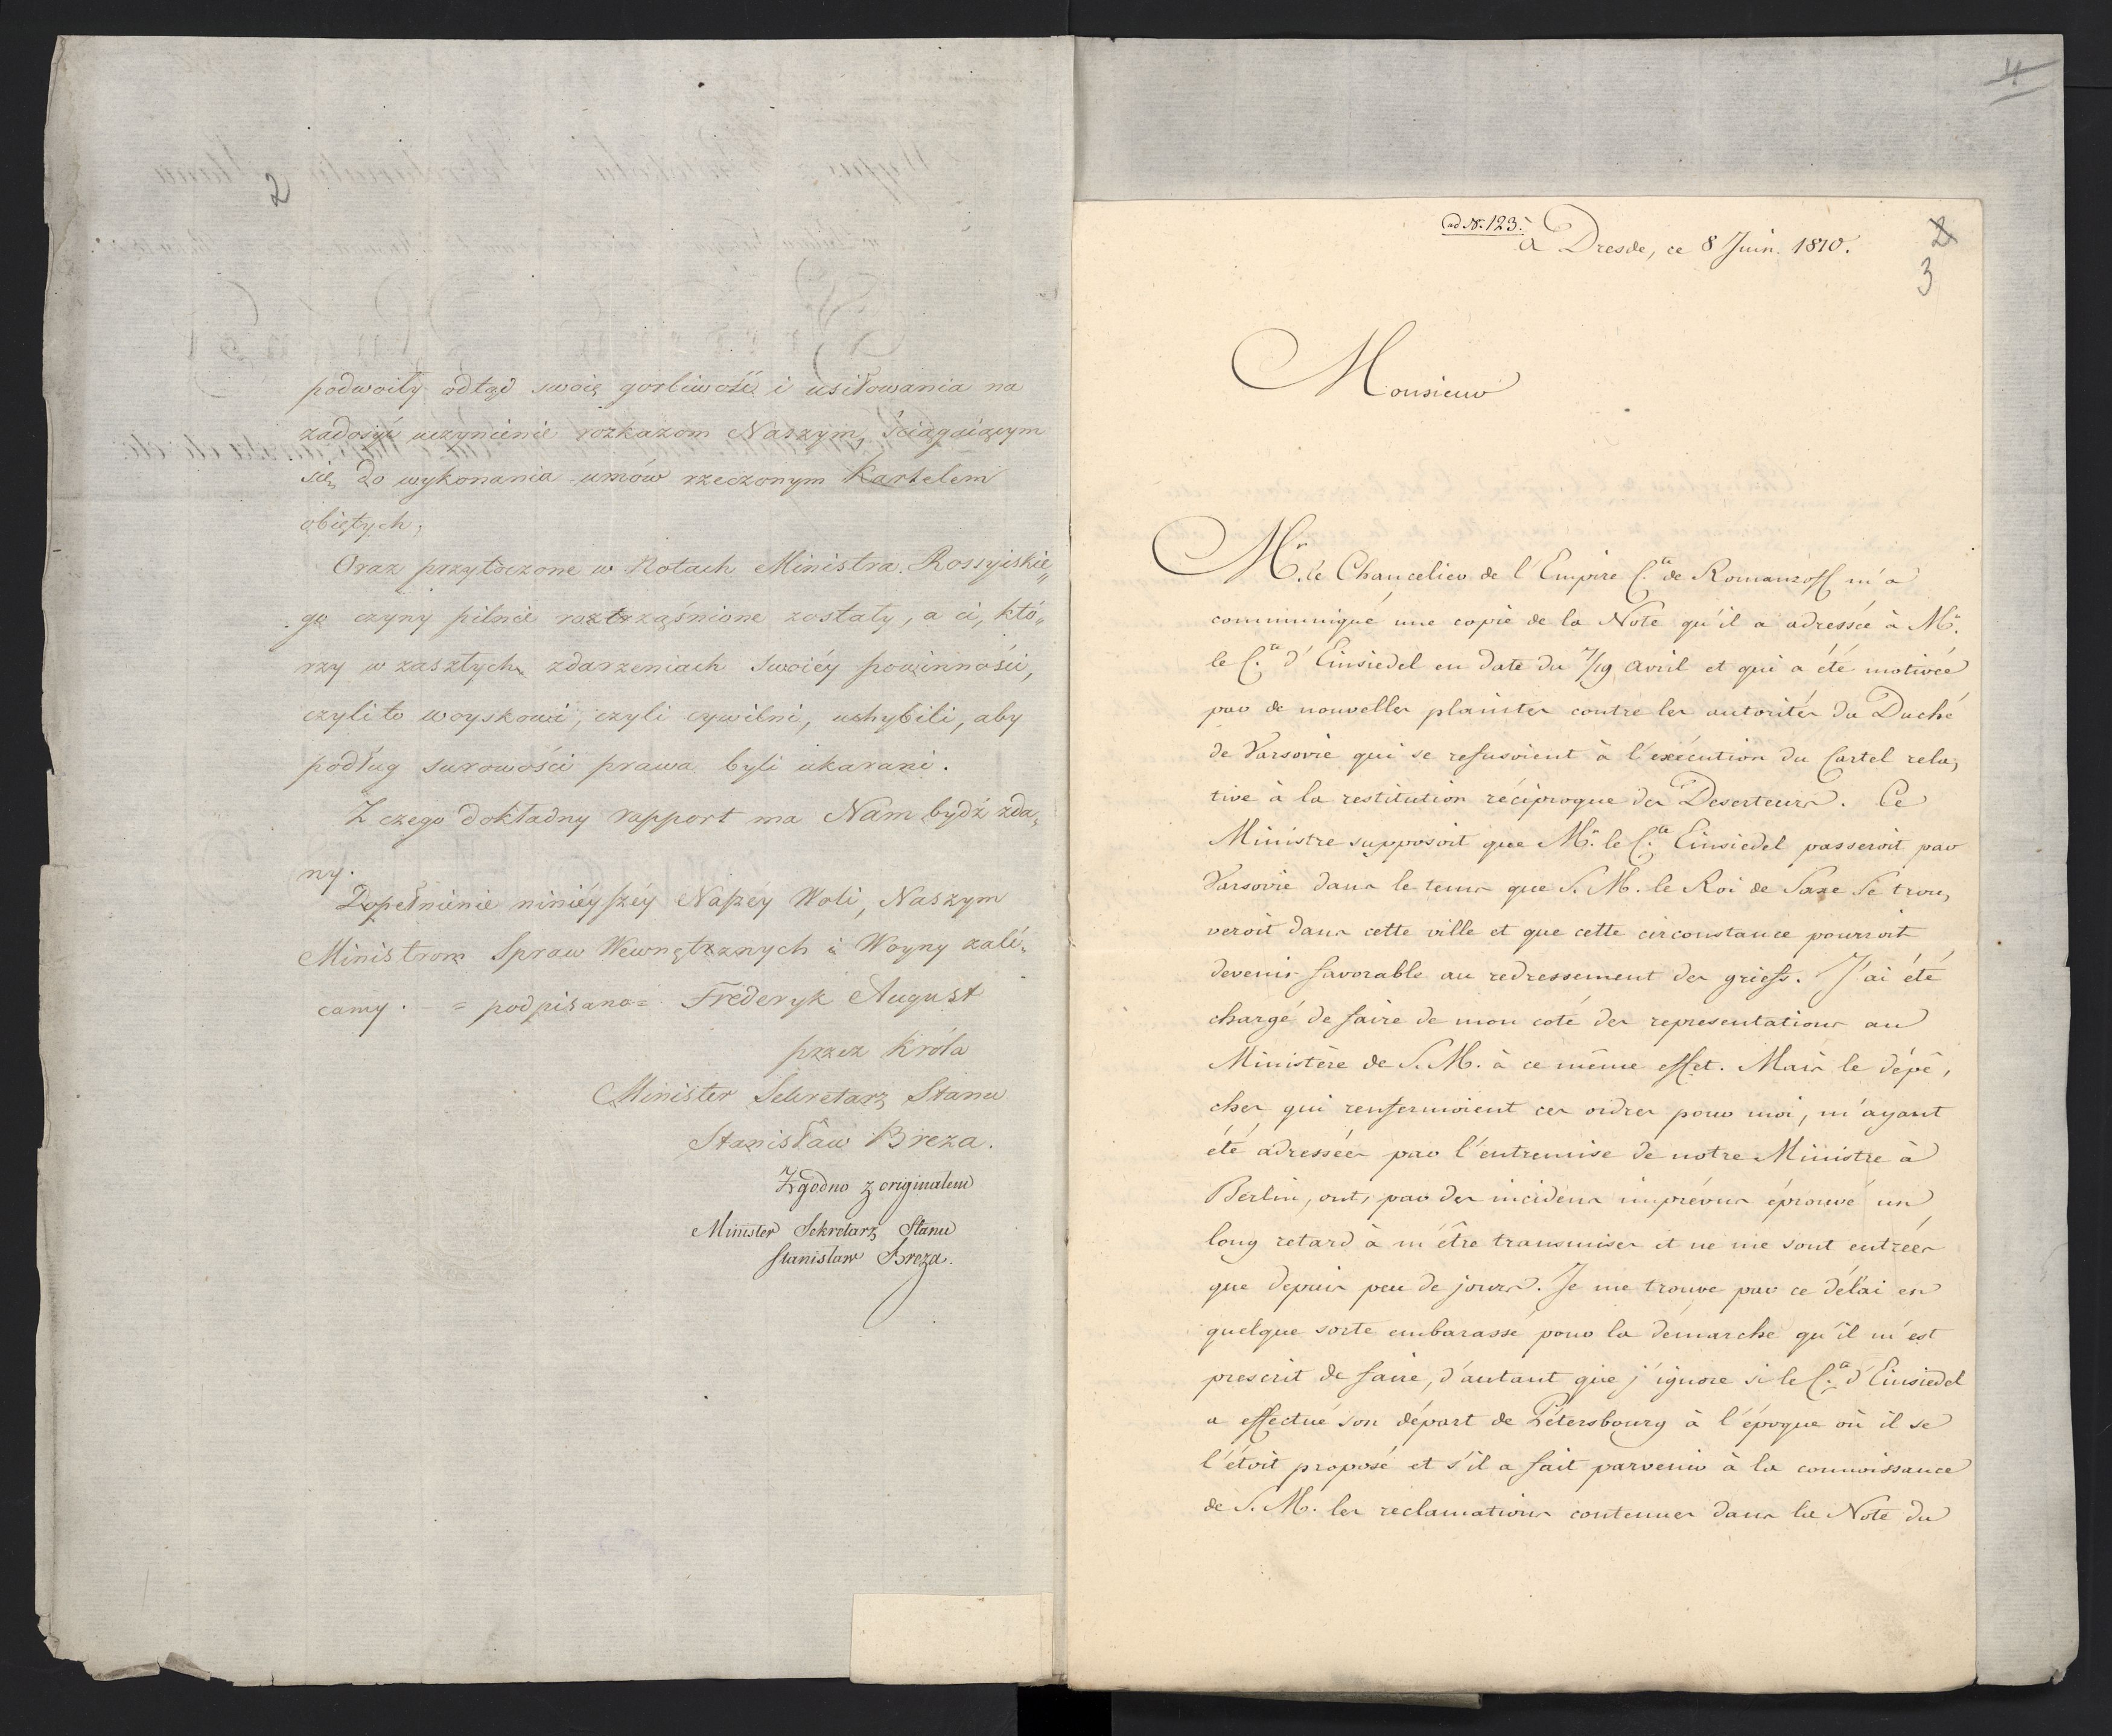 2
podwoiły odtąd swoię gorliwość i usiłowania na
zadosyć uczynienie rozkazom Naszym, ściągaiącym
się do wykonania umów rzeczonym Kartelem
obiętych;
Oraz przytoczone w Notach Ministra Rossyiskie„
go czyny pilnie roztrząśnione zostały, a ci, któ„
rzy w zaszłych zdarzeniach swoiéy powinności,
czyli to woyskowi, czyli cywilni, uchybili, aby
podług surowości prawa byli ukarani.
Z czego dokładny rapport ma Nam bydź zda„
ny.
Dopełnienie ninieyszéy Naszéy Woli, Naszym
Ministrom Spraw Wewnętrznych i Woyny zale„
camy. – = podpisano = Frederyk August
przez Króla
Minister Sekretarz Stanu
Stanisław Breza.
Zgodno z originałem
Minister Sekretarz Stanu
Stanisław Breza.
4
ad Nr. 123.
à Dresde, ce 8 Juin. 1810.
2
3
Monsieur
Mr. le Chancelier de l'Empire Cte. de Romanzoff m'a
communiqué une copie de la Note qu'il a adressée à Mr.
le Cte. d'Einsiedel en date du 7/19 avril et qui a été motivée
par de nouvelles plaintes contre les autorités du Duché
de Varsovie qui se refusoient à l'exécution du Cartel rela„
tive à la restitution réciproque des Deserteurs. Ce
Ministre supposoit que Mr. le Cte. Einsiedel passeroit par
Varsovie dans le tems que S. M. le Roi de Saxe se trou„
veroit dans cette ville et que cette circonstance pourroit
devenir favorable au redressement des griefs. J'ai été
chargé de faire de mon coté des representations au
Ministère de S. M. à ce même effet. Mais le dépê„
ches, qui renfermoient ces ordres pour moi, m'ayant
été adressées par l'entremise de notre Ministre à
Berlin, ont, par des incidens imprévus éprouvé un
long retard à m'être transmises et ne me sont entrées
que depuis peu de jours. Je me trouve par ce délai en
quelque sorte embarassé pour la demarche qu'il m'est
prescrit de faire, d'autant que j'ignore si le Cte. d'Einsiedel
a effectué son départ de Pétersbourg à l'époque où il se
l'étoit proposé et s'il a fait parvenir à la connoissance
de S. M. les reclamations contenues dans la Note du